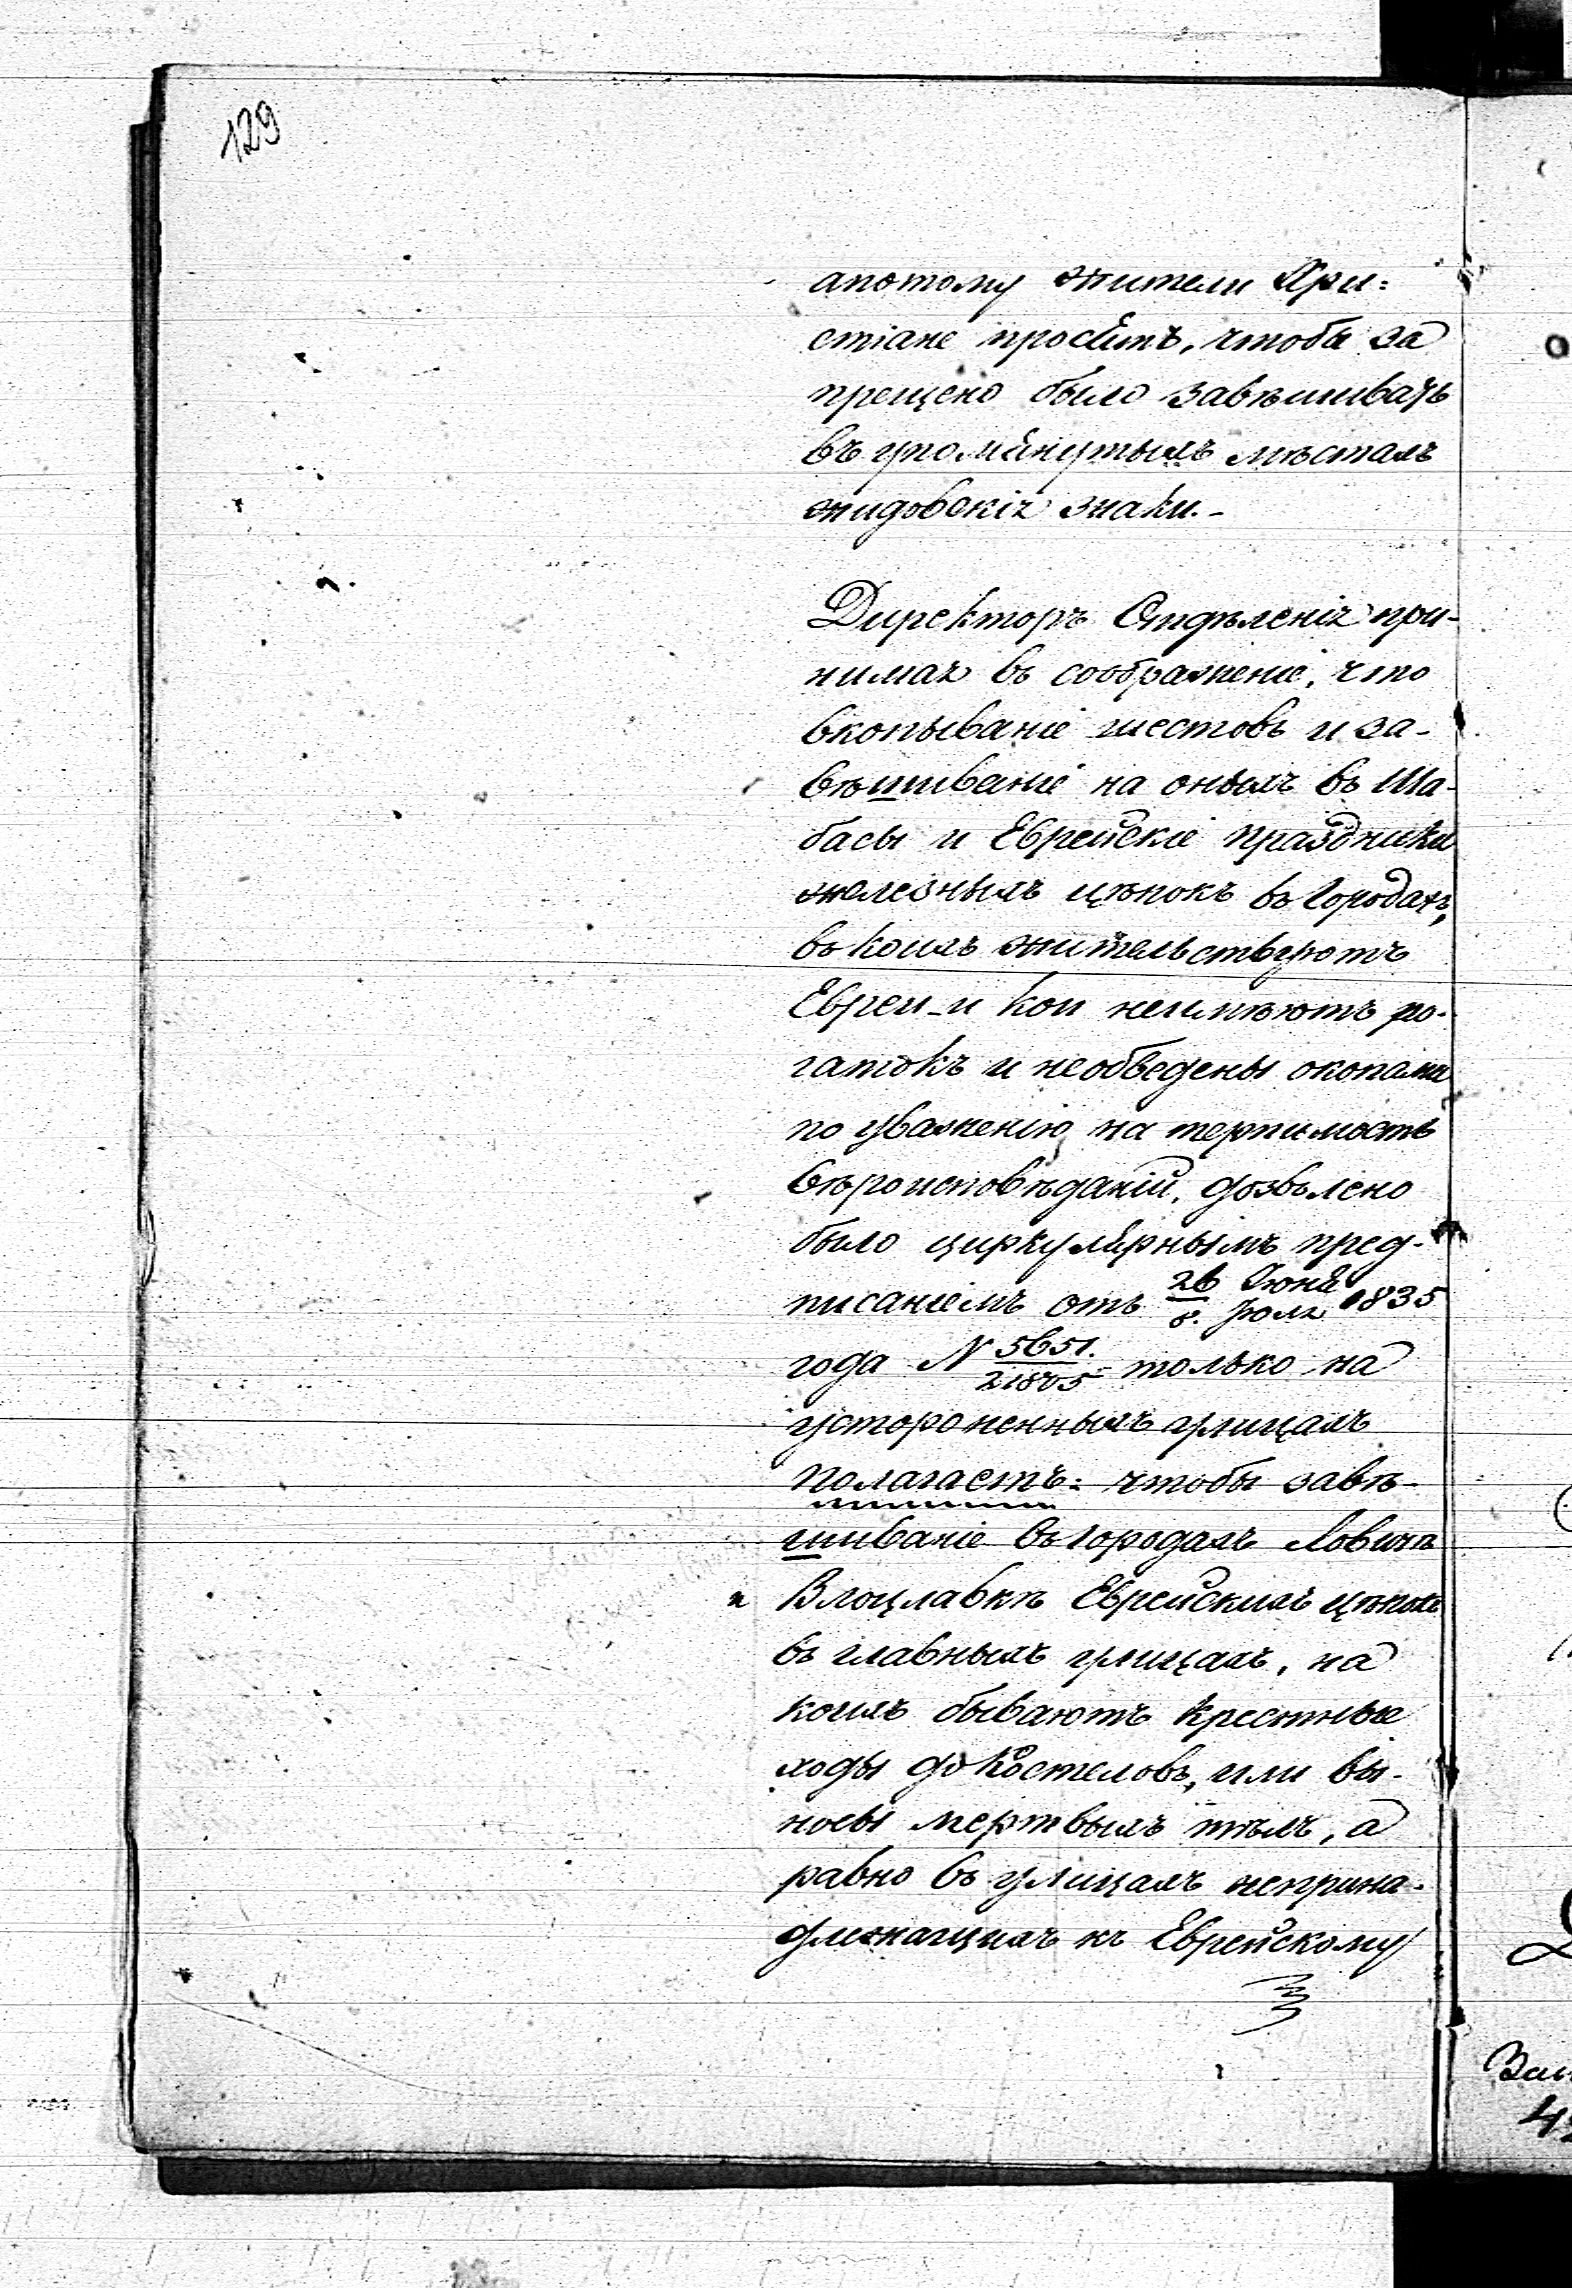 129
апотому жители Хри=
стіане просятъ, чтобы за
прещено было завѣшивать
въ упомянутыхъ мѣстахъ
жидовскія знаки.-
Директоръ Отдѣленія при-
нимая въ соображеніе, что
вкопываніе шестовъ и за-
вѣшиваніе на оныхъ въ Ша-
басы и Еврейскіе праздники
железныхъ цѣпокъ въ Городахъ,
въ коихъ жительствуютъ
Евреи и кои неимѣютъ ро-
гатокъ и необведены окопами
по уваженію на терпимость
вѣроисповѣданій, дозволено
было циркулярнымъ пред-
писаніемъ отъ 26 Іюня / 8. Іюля 1835
года N 5651. / 21805 только на
устороненныхъ улицахъ
полагаетъ: чтобы завѣ-
шиваніе въ городахъ Ловичѣ
и Влоцлавкѣ Еврейскихъ цѣпокъ
въ главныхъ улицахъ, на
коихъ бываютъ крестные
ходы до Костеловъ, или вы-
носы мертвыхъ тѣлъ, а
равно въ улицахъ неприна-
длежащихъ къ Еврейскому